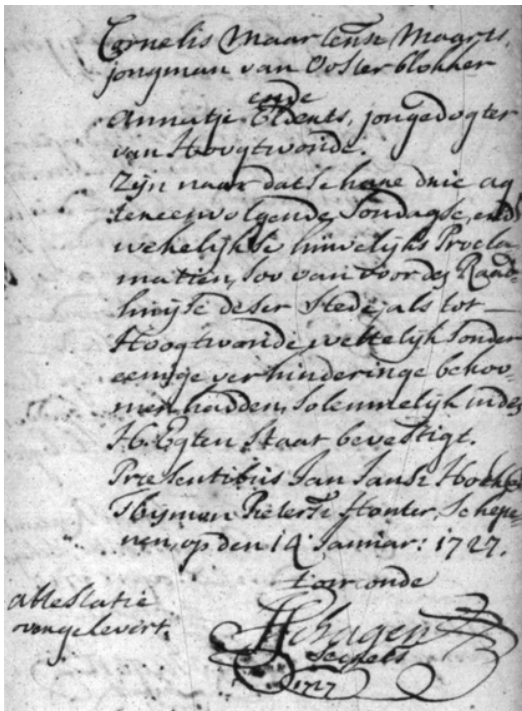 Cornelis Maartensz Maarts,
jongman van Oosterblokker
ende
Annetje Eldents, jongedogter
van Hoogtwoude.
Zijn naar dat se hare drie ag
tereenvolgende, Sondagse, ende
wekelijkse huwelijks Procla
matien, soo van voor des Raad
huijse deser stede, als tot
Hoogtwoude wettelijk sonder
eenige verhinderinge bekoo
men hadden, solemnelijk in des
H: Egten Staat bevestigt.
Præsentibus Jan Jansz
Thijmen Pietersz Houter, Schepe
nen, op den 14 Januar: 1727.
attestatie
overgelevert.
T'oirconde
Schagen
Secrets
1727